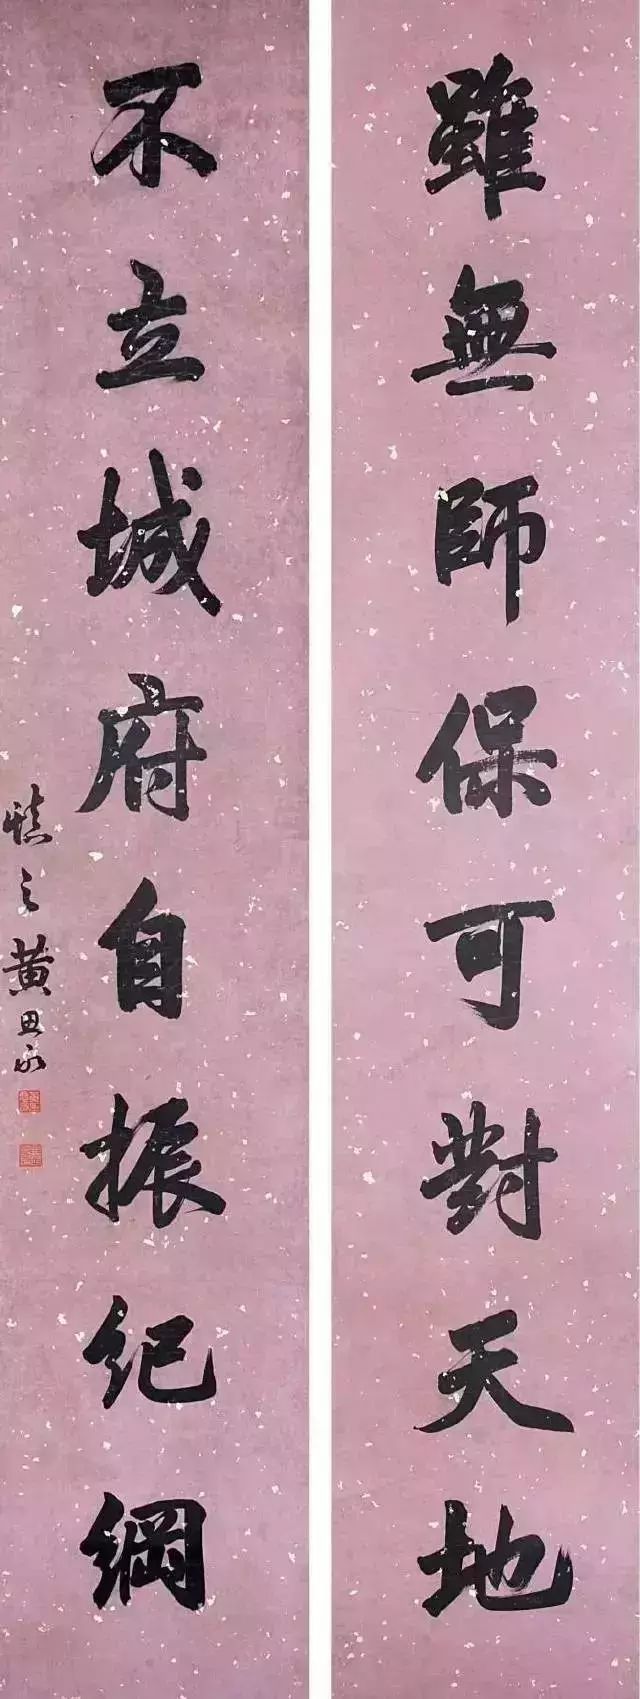 雖無師保可對天地
不立城府自振紀綱
慎之黃思永